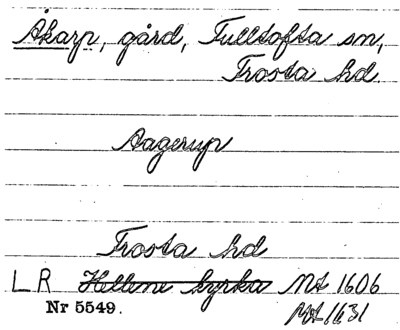 Åkarp, gård, Fulltofta sn,
Frosta hd.
Aagerup
Frosta hd
LR Hellene kyrka Ms 1606
Nr 5549. Ms 1631